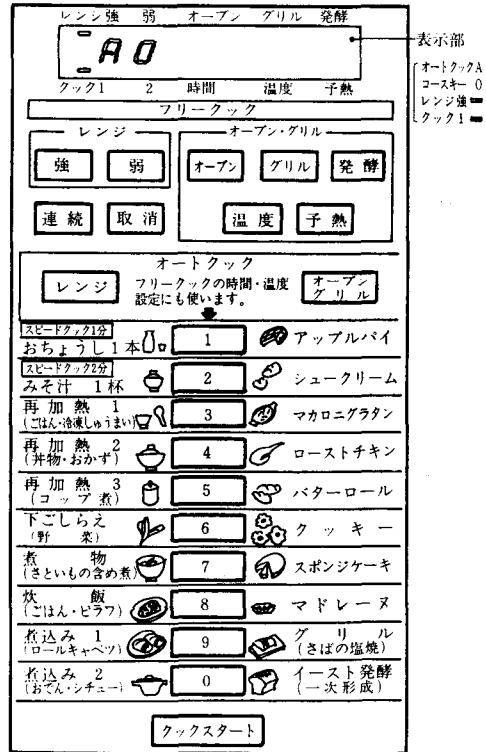 レンジ強 弱 オーブン グリル 発酵
A0
クック1 2 時間 温度 予熱
表示部
オートクックA
コースキー 0
レンジ強
クック1
フリークック
レンジ
オーブン・グリル
強 弱 オーブン グリル 発酵
連続 取消 温度 予熱
オートクック
レンジ
フリークックの時間・温度
設定にも使います。
オーブン
グリル
スピードクック1分
おちょうし1本 1 アップルパイ
スピードクック2分
みそ汁 1杯 2 シュークリーム
再加熱 1
(ごはん・冷凍しゅうまい) 3 マカロニグラタン
再加熱 2
(丼物・おかず) 4 ローストチキン
再加熱 3
(コップ煮) 5 バターロール
下ごしらえ
(野菜) 6 クッキー
煮物
(さといもの含め煮) 7 スポンジケーキ
炊飯
(ごはん・ピラフ) 8 マドレーヌ
煮込み 1
(ロールキャベツ) 9 グリル
(さばの塩焼)
煮込み 2
(おでん・シチュー) 0 イースト発酵
(一次形成)
クックスタート